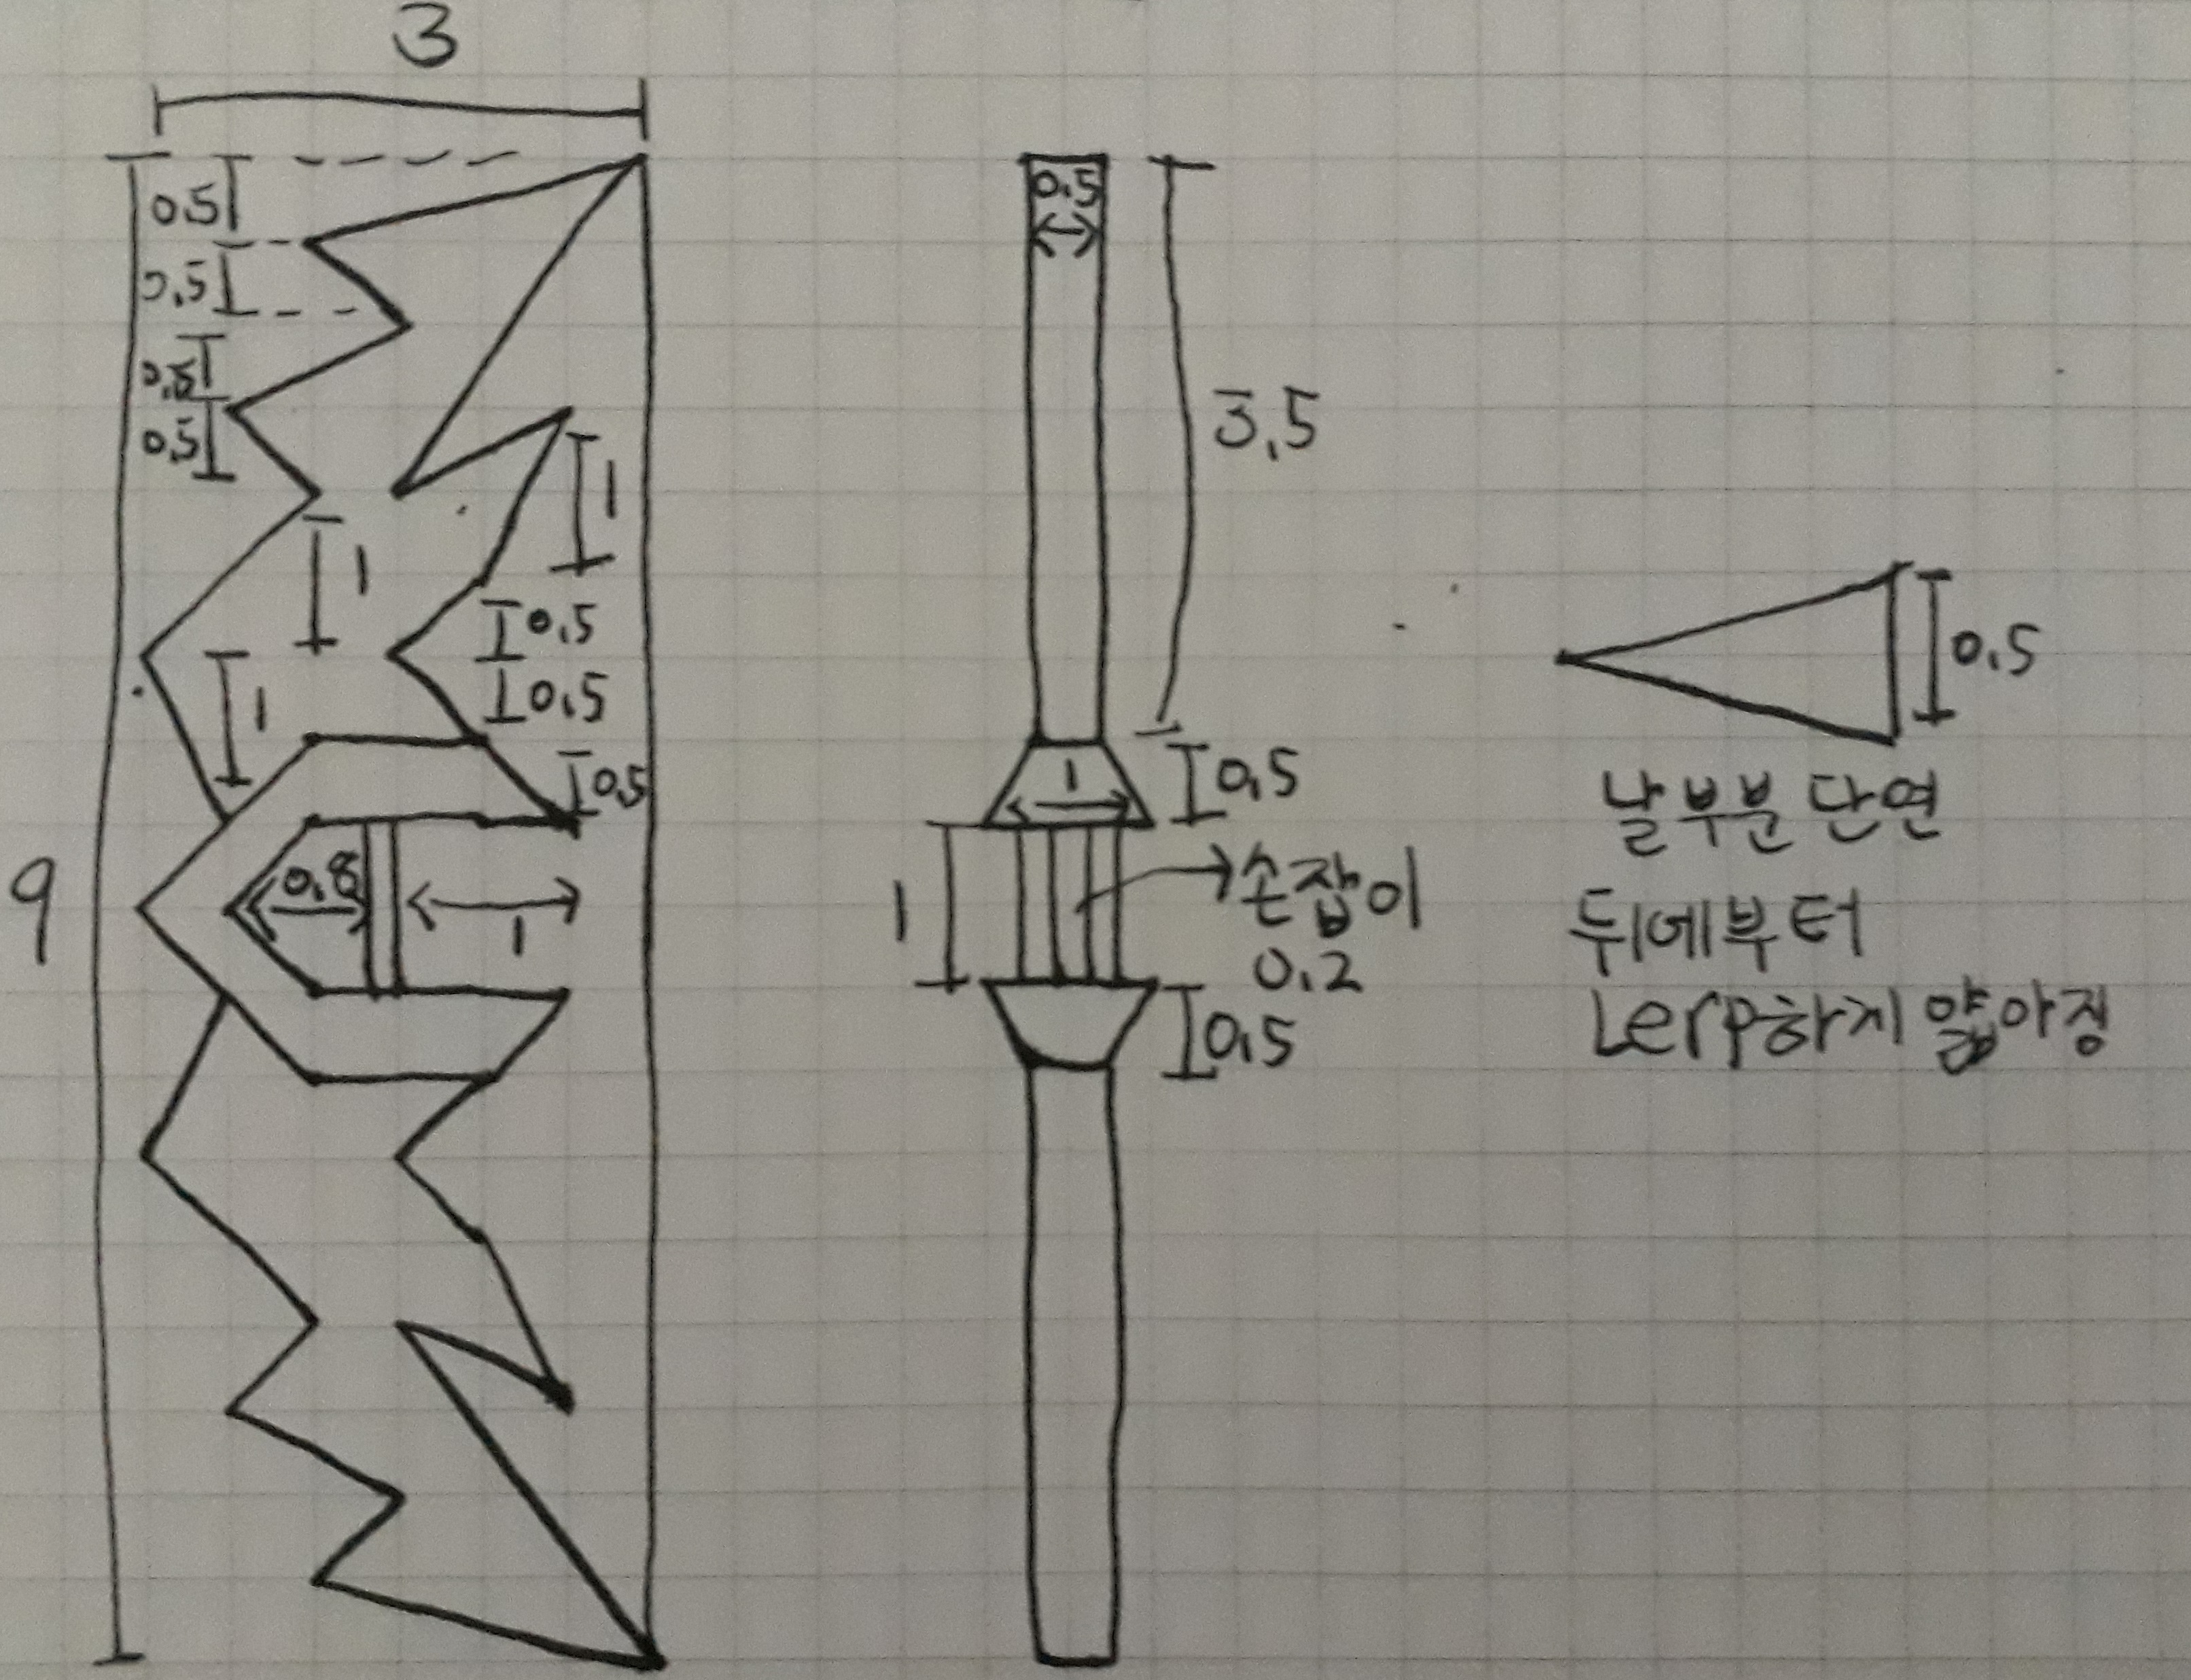 3
0.5
0.5
0.5
0.5
1
1
1
0.5
0.5
0.5
9
0.8
1
0.5
3.5
1
0.5
1
손잡이
0.2
0.5
0.5
날부분 단면
뒤에부터
Lerp하게 얇아짐